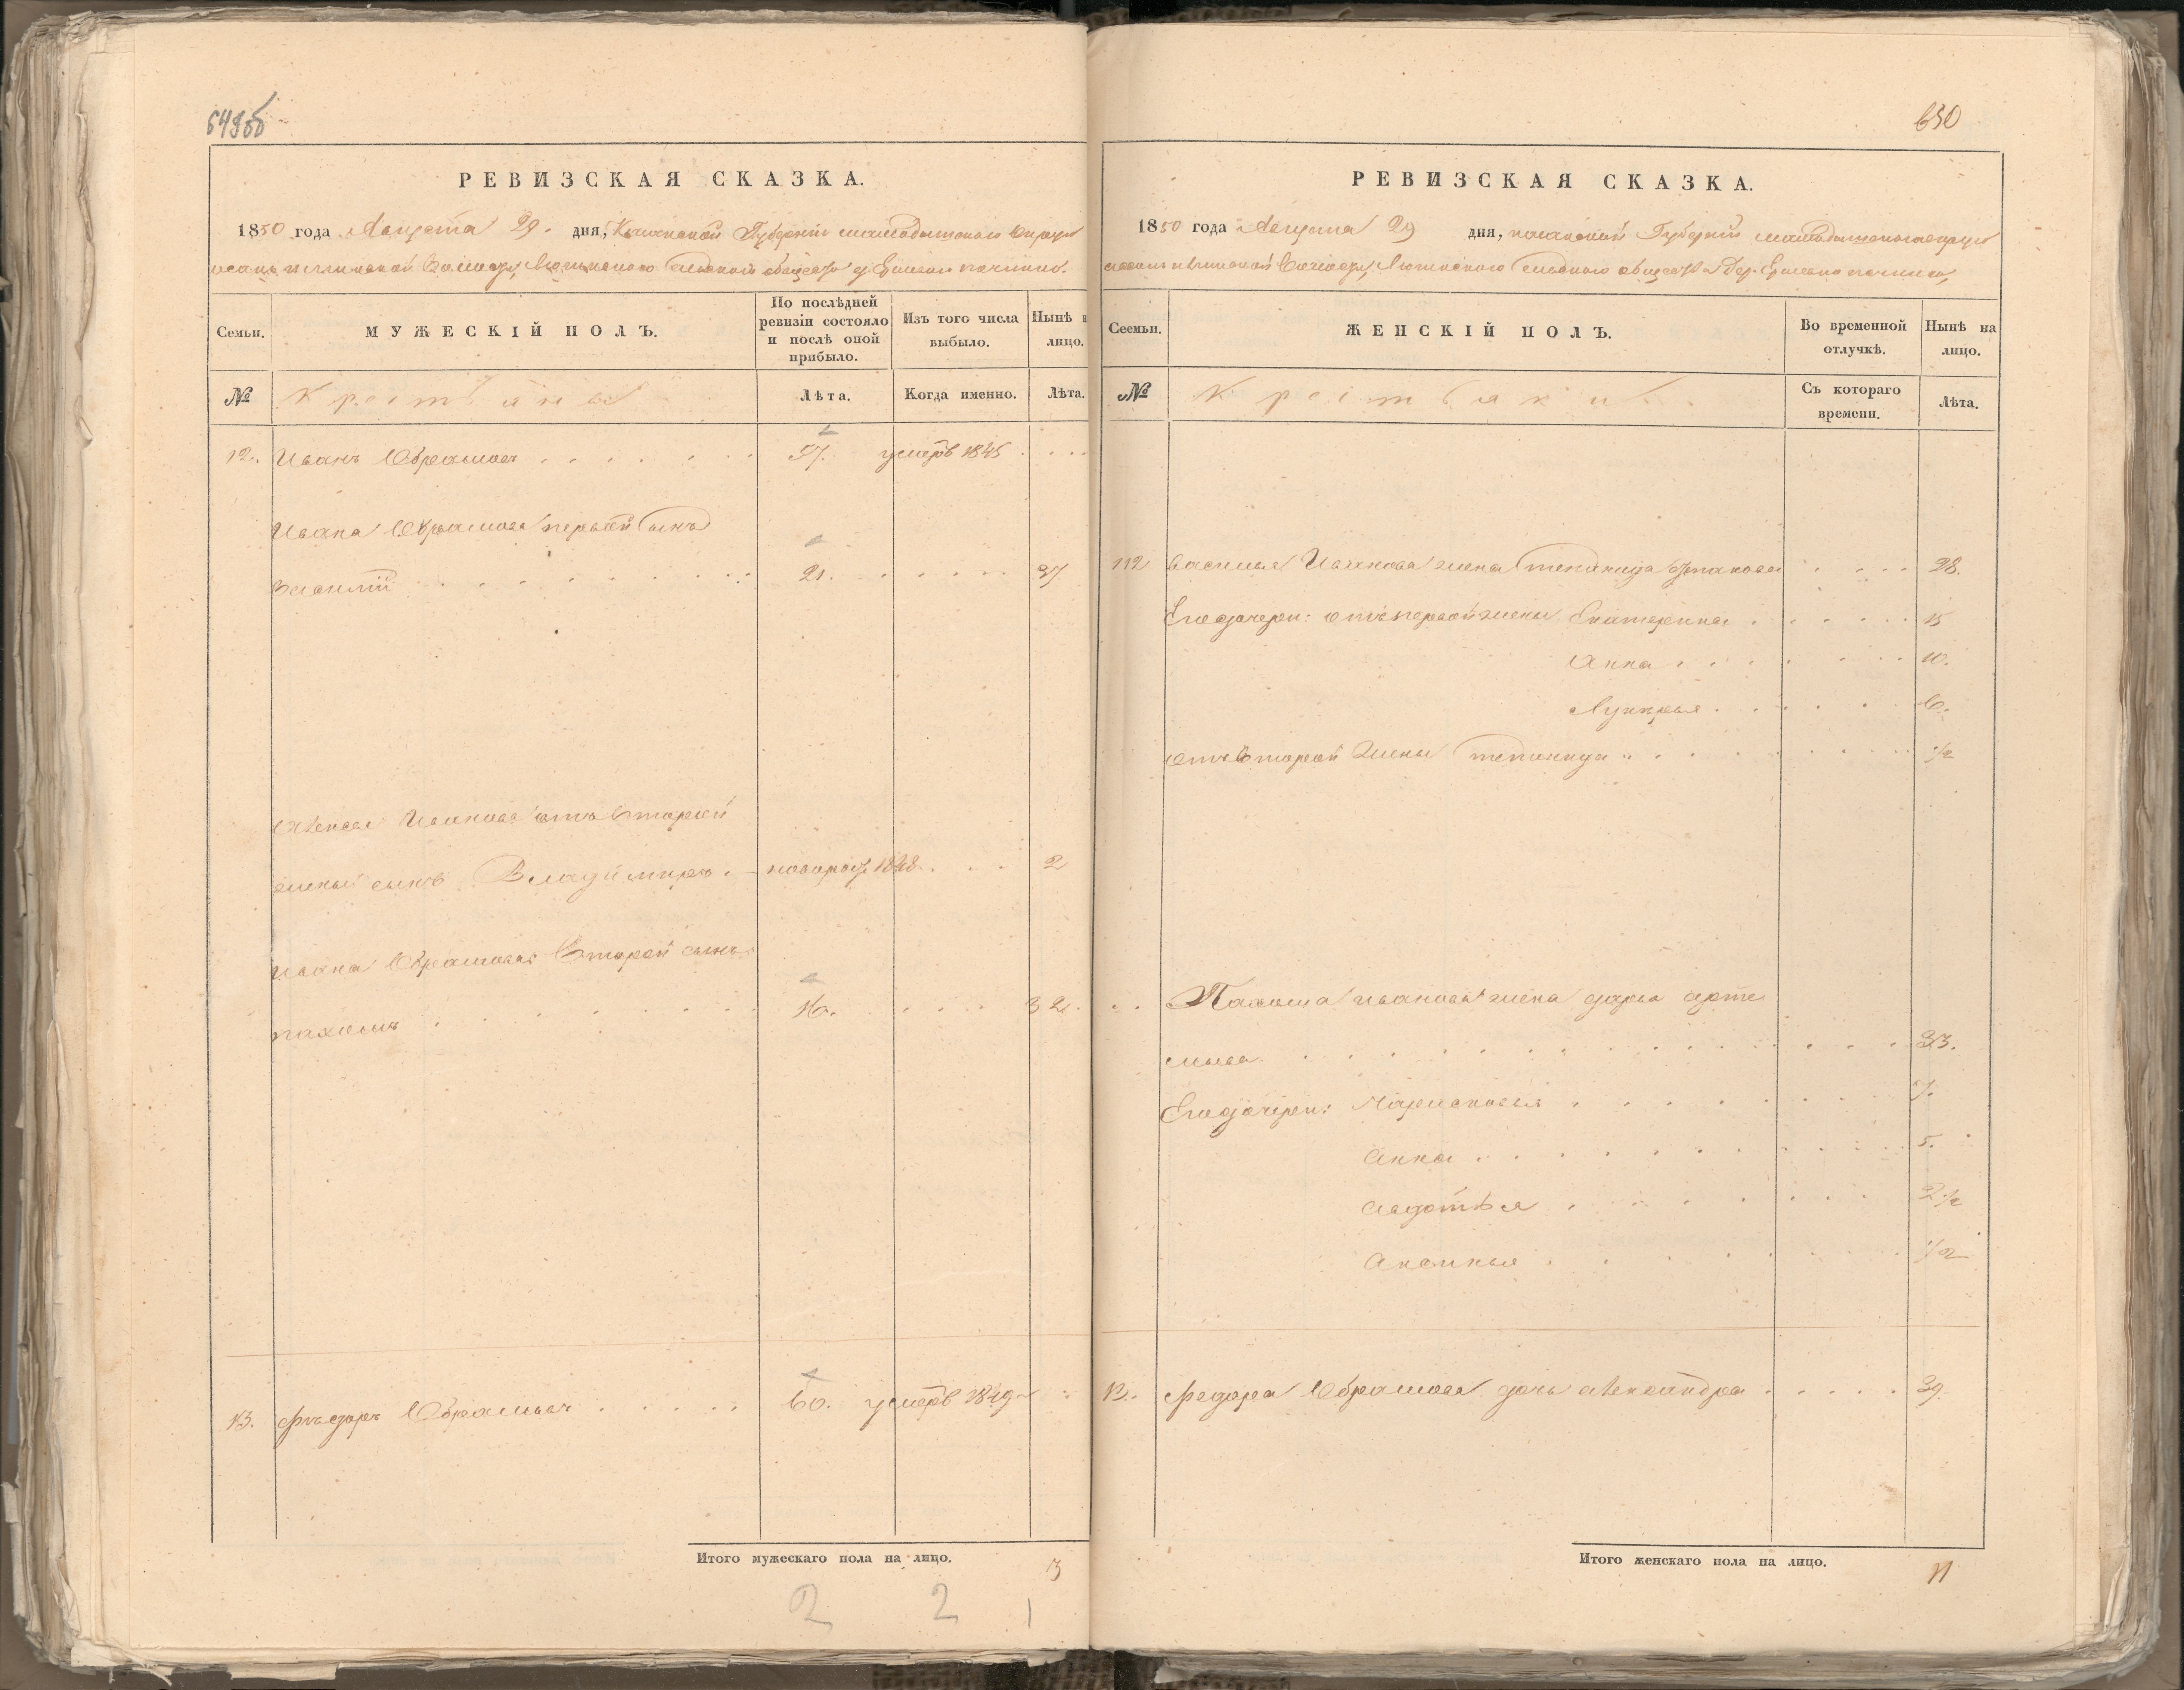 649об
РЕВИЗСКАЯ СКАЗКА.
1850 года Августа 29. дня, Казанской Губернiи Мамадышскаго Округа
Волости, сельскаго общества д.
Семьи.
МУЖЕСКIЙ ПОЛЪ.
По послѣдней ревизiи состояло и послѣ оной прибыло.
Изъ того числа выбыло.
Нынѣ н лицо.
№
Крестьяне
Лѣта.
Когда именно.
Лѣта.
12. Иванъ Абрамовъ 57. умеръ 1845
Ивана Абрамова первой сынъ
Василiй 21. 37.
Ивановъ отъ второй
жены сынъ Владимиръ. новорож. 1848. 2
Ивана Абрамова второй сынъ
пахомъ 16. 32.
13. Федоръ Абрамовъ 60. умеръ 1849
Итого мужескаго пола на лицо. 3
2 2 1
650
РЕВИЗСКАЯ СКАЗКА.
1850 года Августа 29 дня, казанской Губернiи Мамадышскаго округа
Волости, сельскаго общества дер.
Сеемьи.
ЖЕНСКIЙ ПОЛЪ.
Во временной отлучкѣ.
Нынѣ на лицо.
№
Крестьянъ
Съ котораго времени.
Лѣта.
112 Василья Иванова жена 28.
Его дочери: отъ первой жены Екатерина 15
Анна 10.
Лукерья 6.
отъ второй жены 1/2
Пахома иванова жена дарья арте
мьева 33.
Его дочери: 7.
Анна 5.
авдотья 2 1/2
1/2
13. Федора Абрамова дочь александра 39.
Итого женскаго пола на лицо. 11